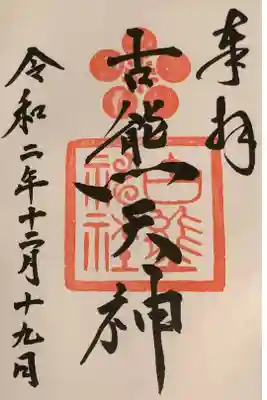 奉拝
古熊天神
古熊神社
令和二年十二月十九日